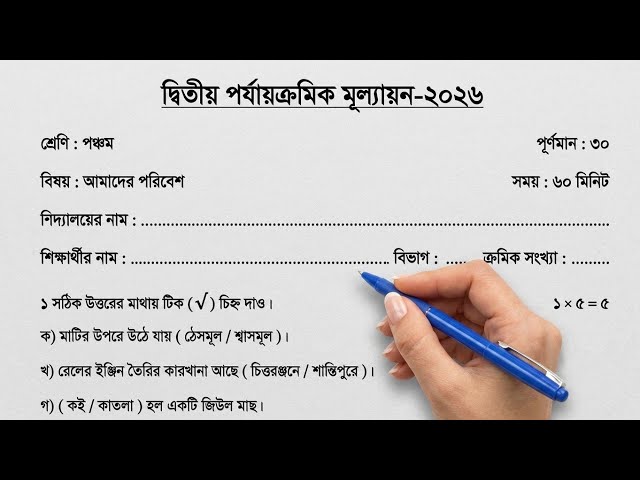 দ্বিতীয় পর্যায়ক্রমিক মূল্যায়ন-২০২৬
শ্রেণি : পঞ্চম পূর্ণমান : ৩০
বিষয় : আমাদের পরিবেশ সময় : ৬০ মিনিট
নিদ্যালয়ের নাম : ........................................................................
শিক্ষার্থীর নাম : ................................................ বিভাগ : ..... ক্রমিক সংখ্যা : .........
১ সঠিক উত্তরের মাথায় টিক ( √ ) চিহ্ন দাও। ১ × ৫ = ৫
ক) মাটির উপরে উঠে যায় ( ঠেসমূল / শ্বাসমূল )।
খ) রেলের ইঞ্জিন তৈরির কারখানা আছে ( চিত্তরঞ্জনে / শান্তিপুরে )।
গ) ( কই / কাতলা ) হল একটি জিউল মাছ।